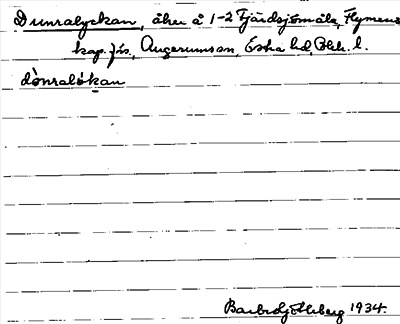 Dunralyckan, åker å 1-2 Fjärdsjömåla, Flymens
kap. förs, Augerumson, Östra hd, Blek. l.
dònralókan
1934.